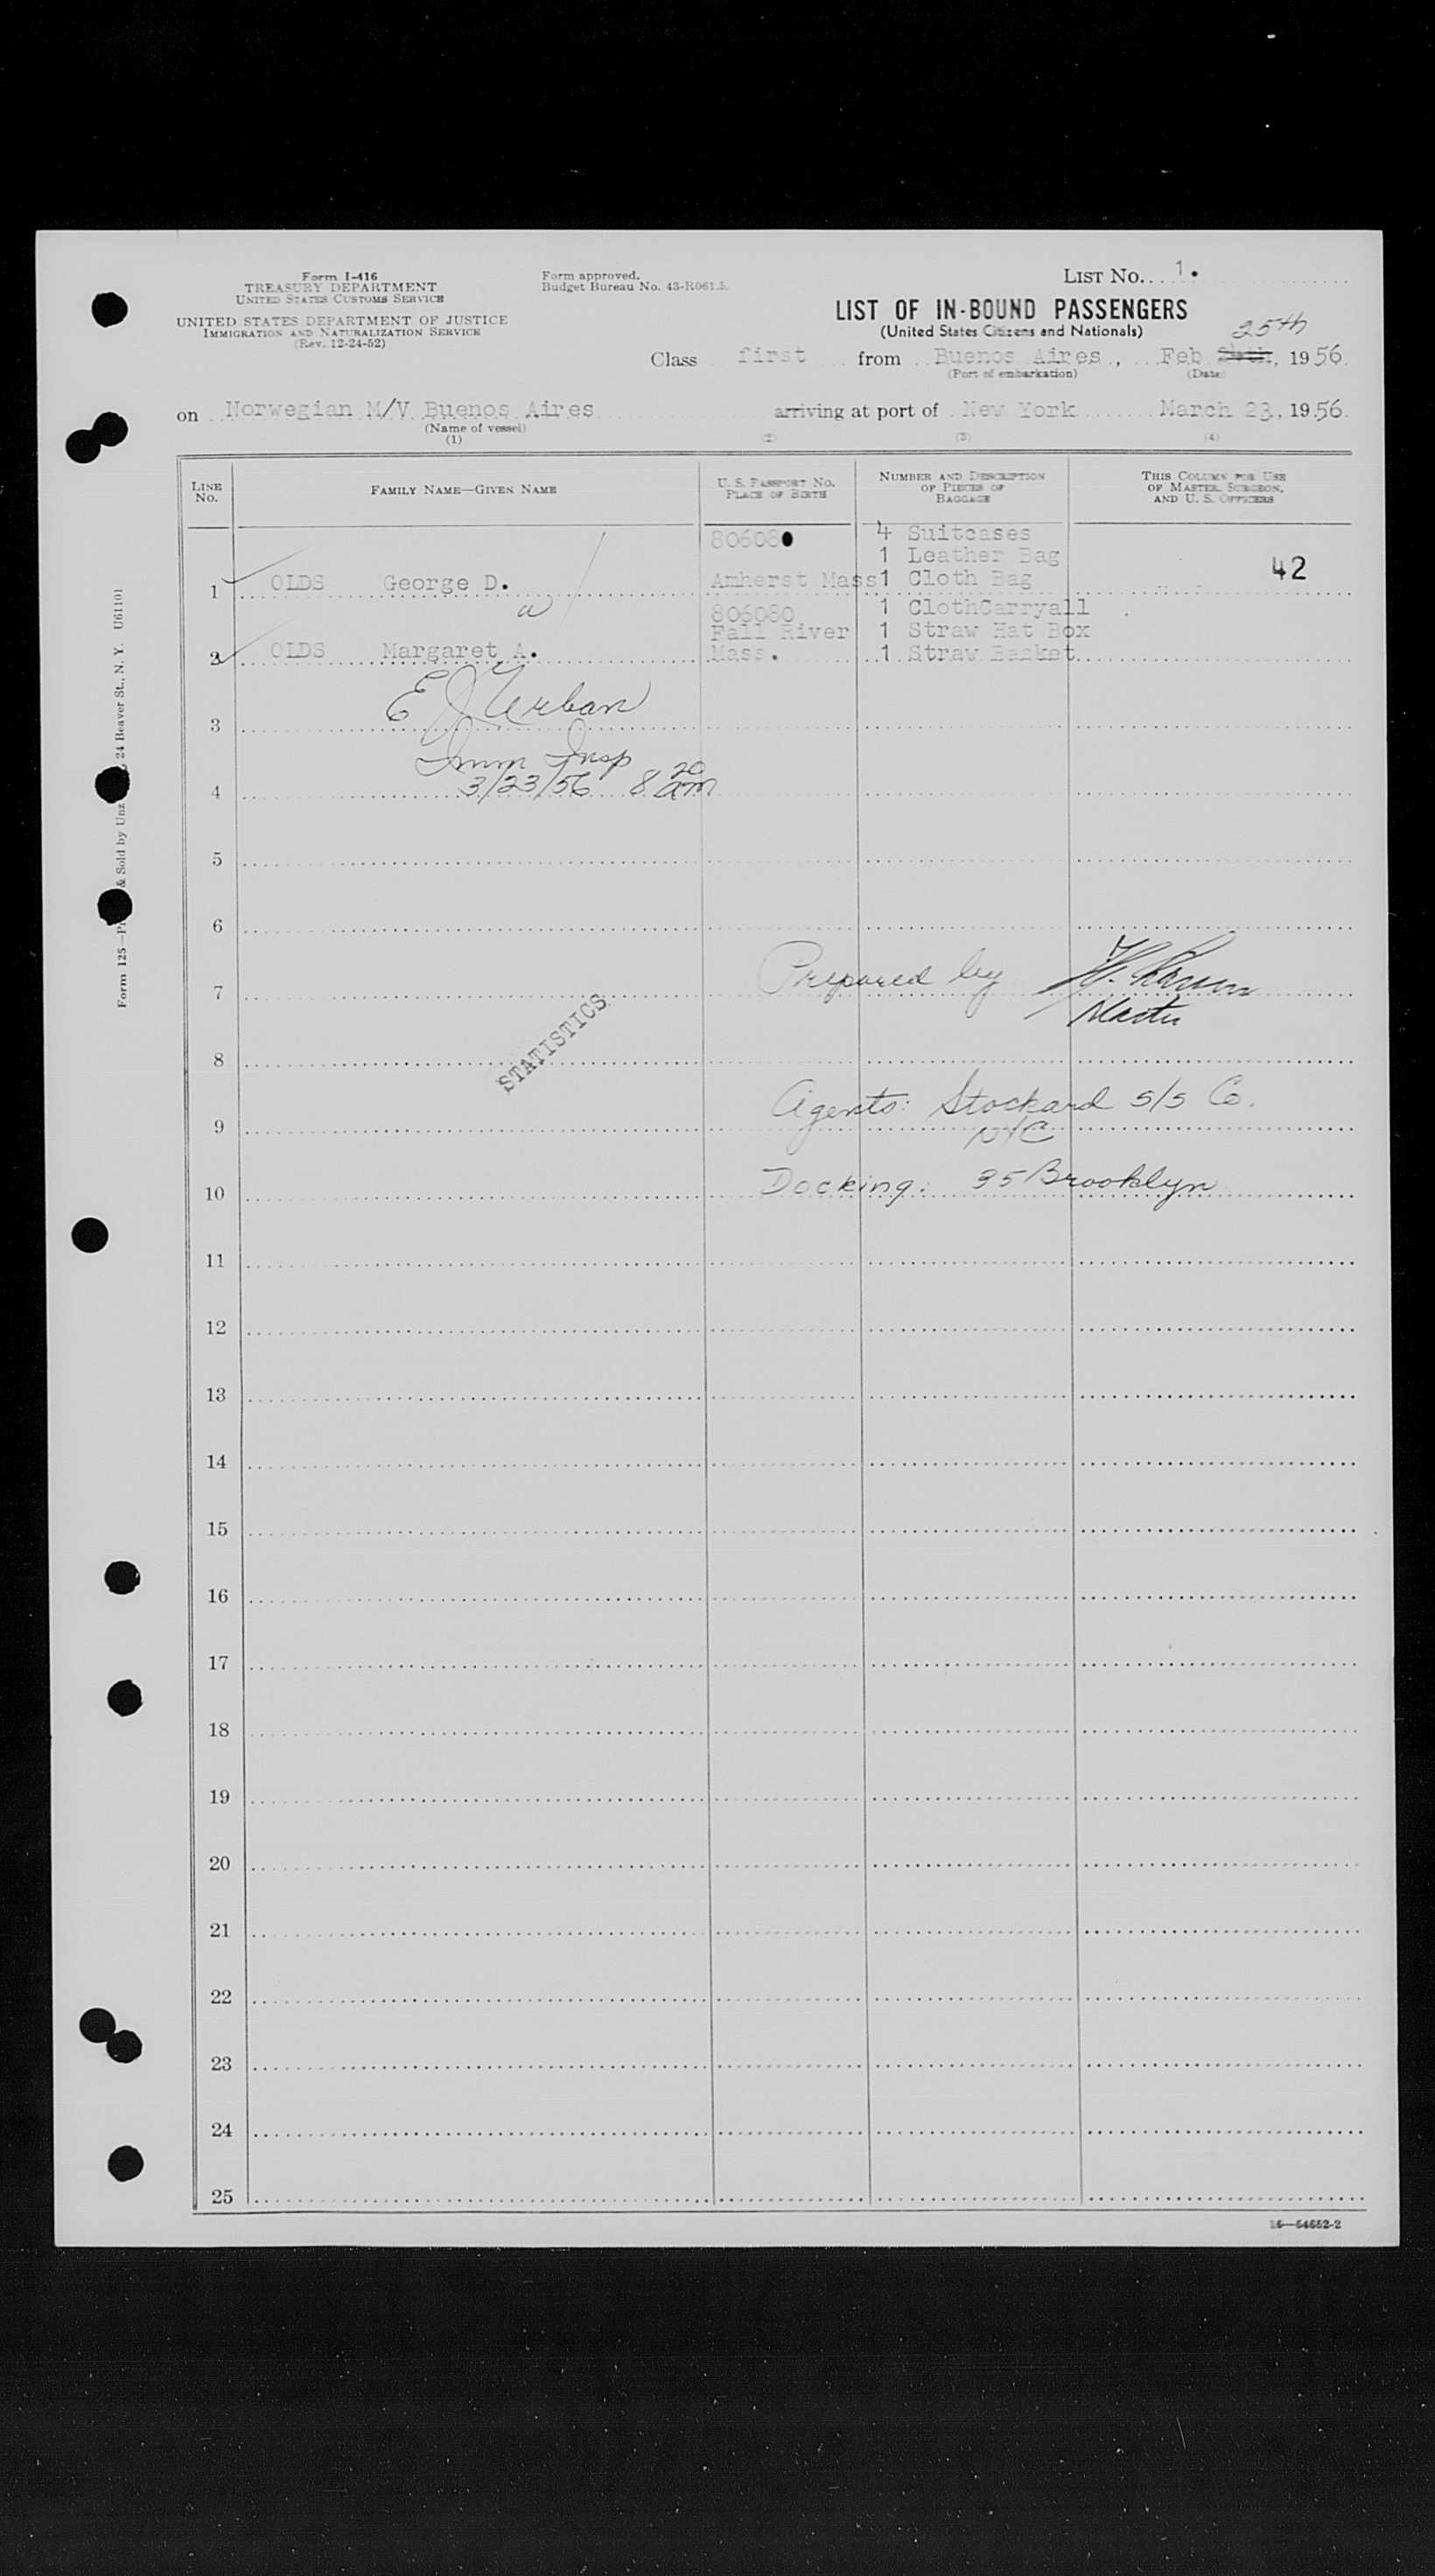 Form I-416
TREASURY DEPARTMENT
UNITED STATES CUSTOMS SERVICE
UNITED STATES DEPARTMENT OF JUSTICE
IMMIGRATION AND NATURALIZATION SERVICE
(Rev. 12-24-52)
Form approved.
Budget Bureau No. 43-R061.5.
LIST NO. 1.
LIST OF IN-BOUND PASSENGERS
(United States Citizens and Nationals)
25th
Class first from Buenos Aires, Feb , 1956
(Port of embarkation) (Date)
on Norwegian M/V Buenos Aires arriving at port of New York March 23, 1956
(Name of vessel)
(1) (2) (3) (4)
LINE NO.
FAMILY NAME—GIVEN NAME
U. S. PASSPORT NO.
PLACE OF BIRTH
NUMBER AND DESCRIPTION
OF PIECES OF
BAGGAGE
THIS COLUMN FOR USE
OF MASTER, SURGEON,
AND U. S. OFFICERS
80608 4 Suitcases
1 Leather Bag
1 OLDS George D. Amherst Mass 1 Cloth Bag 42
806080 1 ClothCarryall
Fall River 1 Straw Hat Box
2 OLDS Margaret A. Mass. 1 Straw Basket
E J Urban
3
Imm Insp
4 3/23/56 8 20 am
5
6
7 Prepared by
Master
8 STATISTICS
Agents: Stockard S/S Co.
9 NYC
10 Docking: 35 Brooklyn
11
12
13
14
15
16
17
18
19
20
21
22
23
24
25
16—54652-2
Form 125— & Sold by Unz 24 Beaver St., N. Y. U61101